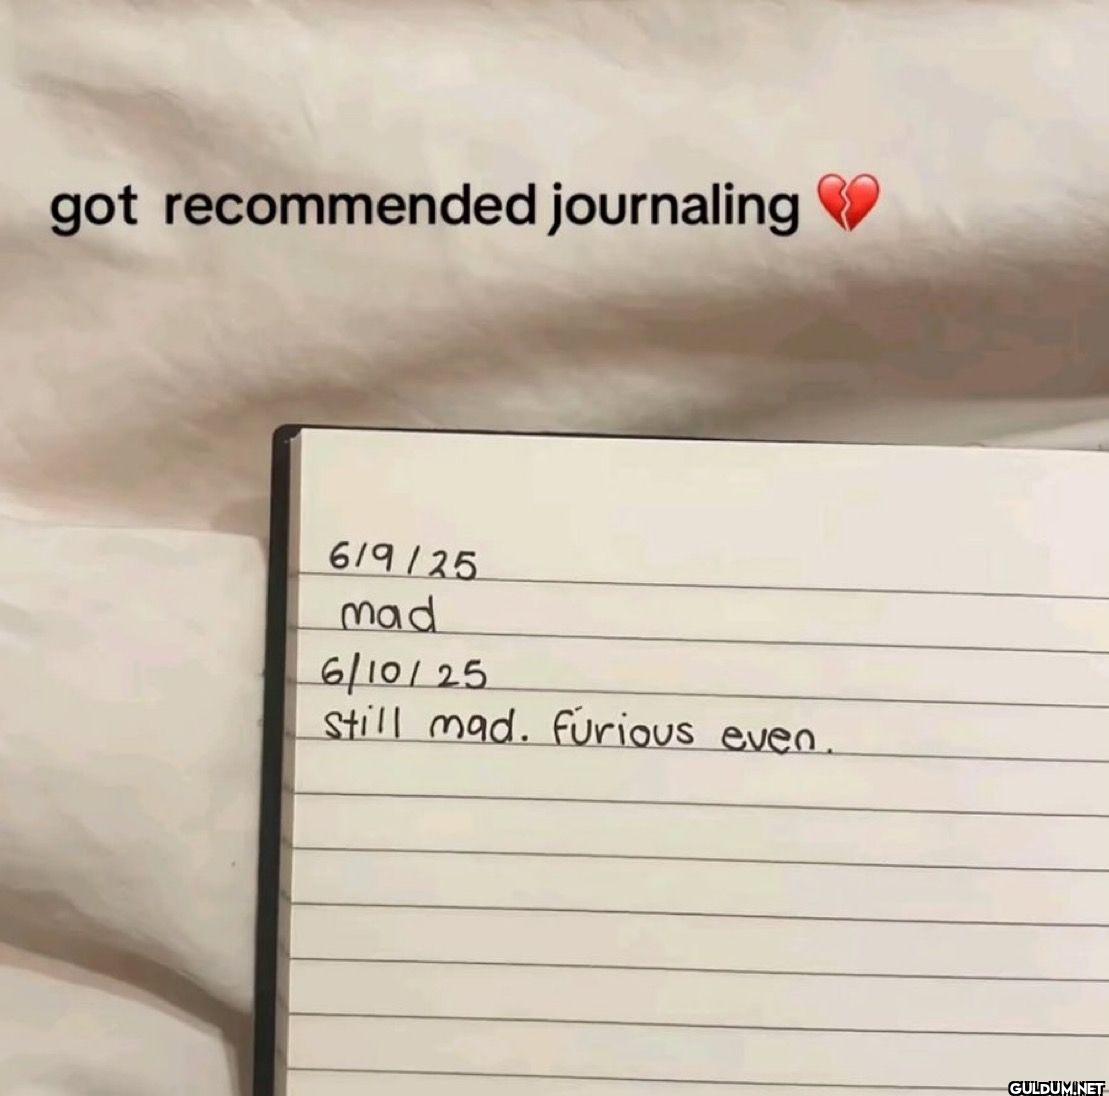 got recommended journaling 💔
6/9/25
mad
6/10/25
still mad. furious even.
GULDUM.NET